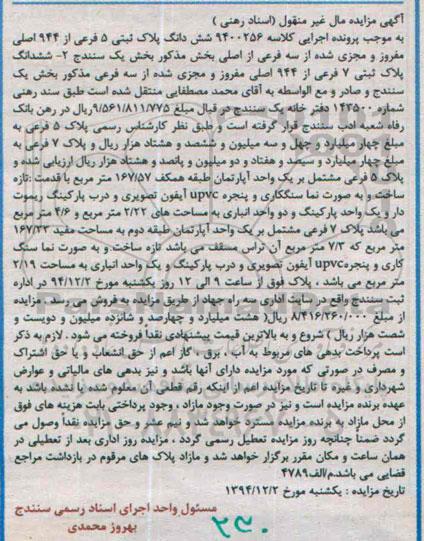 آگهی مزایده مال غیر منقول (اسناد رهنی )
به موجب پرونده اجرایی کلاسه ۹۴۰۰۲۵۶ شش دانگ پلاک ثبتی ۵ فرعی از ۹۴۴ اصلی
مفروز و مجزی شده از سه فرعی از اصلی بخش مذکور بخش یک سنندج ۲- ششدانگ
پلاک ثبتی ۷ فرعی از ۹۴۴ اصلی مفروز و مجزی شده از سه فرعی مذکور بخش یک
سنندج و صادر و مع الواسطه به آقای محمد مصطفایی منتقل شده است طبق سند رهنی
شماره ۱۴۳۵۰۰ دفتر خانه یک سنندج در قبال مبلغ ۹/۵۶۱/۸۱۱/۷۷۵ریال در رهن بانک
رفاه شعبه ادب سنندج قرار گرفته است و طبق نظر کارشناس رسمی پلاک ۵ فرعی به
مبلغ چهار میلیارد و چهل و سه میلیون و ششصد و هشتاد هزار ریال و پلاک ۷ فرعی به
مبلغ چهار میلیارد و سیصد و هفتاد و دو میلیون و پانصد و هشتاد هزار ریال ارزیابی شده و
پلاک ۵ فرعی مشتمل بر یک واحد آپارتمان طبقه همکف ۱۶۷/۵۷ متر مربع با قدمت :تازه
ساخت و به صورت نما سنگکاری و پنجره upvc آیفون تصویری و درب پارکینگ ریموت
دار و یک واحد پارکینگ و دو واحد انباری به مساحت های ۲/۲۲ متر مربع و ۴/۶ متر مربع
می باشد پلاک ۷ فرعی مشتمل بر یک واحد آپارتمان طبقه دوم به مساحت مفید ۱۶۷/۲۳
متر مربع که ۷/۳ متر مربع آن تراس مسقف می باشد تازه ساخت و به صورت نما سنگ
کاری و پنجرهupvc آیفون تصویری و درب پارکینگ و یک واحد انباری به مساحت ۲/۱۹
متر مربع می باشد ، پلاک فوق از ساعت ۹ الی ۱۲ روز یکشنبه مورخ ۹۴/۱۲/۲ در اداره
ثبت سنندج واقع در سایت اداری سه راه جهاد از طریق مزایده به فروش می رسد . مزایده
از مبلغ ۸/۴۱۶/۲۶۰/۰۰۰ ریال( هشت میلیارد و چهارصد و شانزده میلیون و دویست و
شصت هزار ریال ) شروع و به بالاترین قیمت پیشنهادی نقداً فروخته می شود . لازم به ذکر
است پرداخت بدهی های مربوط به آب ، برق ، گاز اعم از حق انشعاب و یا حق اشتراک
و مصرف در صورتی که مورد مزایده دارای آنها باشد و نیز بدهی های مالیاتی و عوارض
شهرداری و غیره تا تاریخ مزایده اعم از اینکه رقم قطعی آن معلوم شده یا نشده باشد به
عهده برنده مزایده است و نیز در صورت وجود مازاد ، وجوه پرداختی بابت هزینه های فوق
از محل مازاد به برنده مزایده مسترد خواهد شد و نیم عشر و حق مزایده نقداً وصول می
گردد ضمناً چنانچه روز مزایده تعطیل رسمی گردد ، مزایده روز اداری بعد از تعطیلی در
همان ساعت و مکان مقرر برگزار خواهد شد و مازاد پلاک های مرقوم در بازداشت مراجع
قضایی می باشد.م/الف۴۷۸۹
تاریخ مزایده : یکشنبه مورخ ۱۳۹۴/۱۲/۲
مسئول واحد اجرای اسناد رسمی سنندج
بهروز محمدی